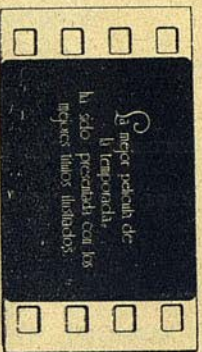 La mejor película de
la temporada,
ha sido presentada con los
mejores títulos ilustrados.